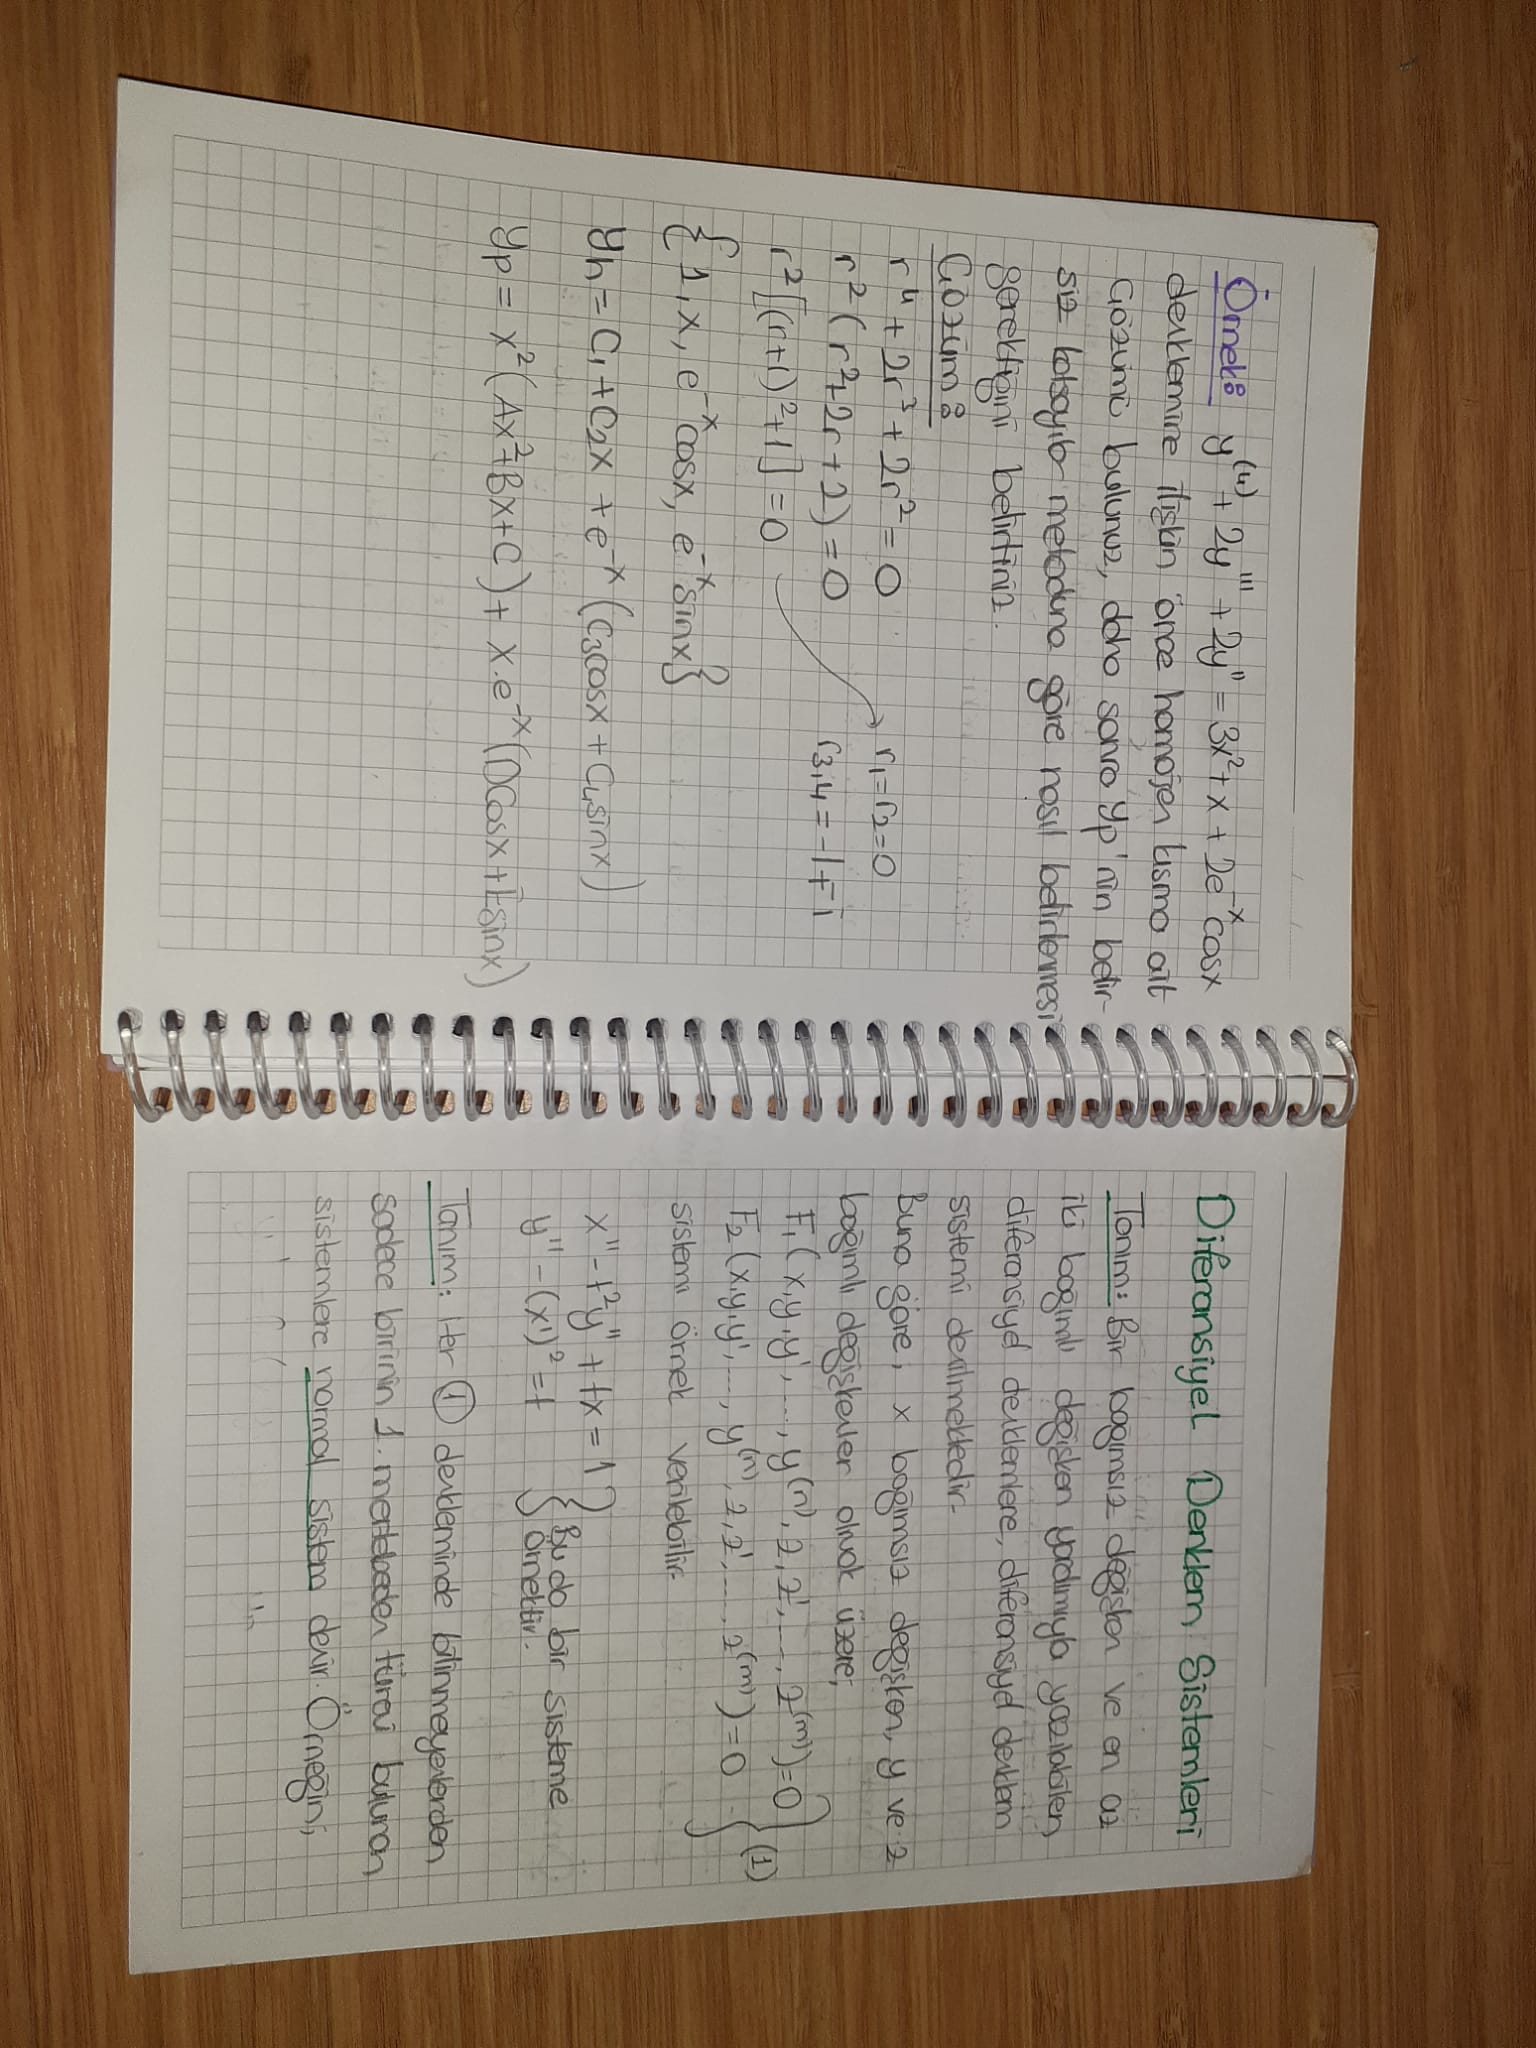 Örnek: y⁽⁴⁾ + 2y''' + 2y'' = 3x² + x + 2e⁻ˣcosx
denklemine ilişkin önce homojen kısma ait
çözümü bulunuz, daha sonra yp'nin belir-
siz katsayılar metoduna göre nasıl belirlenmesi
gerektiğini belirtiniz.
Çözüm:
r⁴ + 2r³ + 2r² = 0
r²(r² + 2r + 2) = 0
r²[(r+1)² + 1] = 0
r₁ = r₂ = 0
r₃,₄ = -1 ∓ i
{1, x, e⁻ˣcosx, e⁻ˣsinx}
yh = C₁ + C₂x + e⁻ˣ(C₃cosx + C₄sinx)
yp = x²(Ax² + Bx + C) + x.e⁻ˣ(DCosx + Esinx)
Diferansiyel Denklem Sistemleri
Tanım: Bir bağımsız değişken ve en az
iki bağımlı değişken yardımıyla yazılabilen
diferansiyel denklemlere, diferansiyel denklem
sistemi denilmektedir.
Buna göre; x bağımsız değişken, y ve z
bağımlı değişkenler olmak üzere;
F₁(x, y, y', ...., y⁽ⁿ⁾, z, z', ...., z⁽ᵐ⁾) = 0
F₂(x, y, y', ...., y⁽ⁿ⁾, z, z', ...., z⁽ᵐ⁾) = 0 } (1)
sistemi örnek verilebilir.
x'' - t²y'' + tx = 1
y'' - (x')² = t
} Bu da bir sisteme
örnektir.
Tanım: Her ① denkleminde bilinmeyenlerden
sadece birinin 1. mertebeden türevi bulunan
sistemlere normal sistem denir. Örneğin;